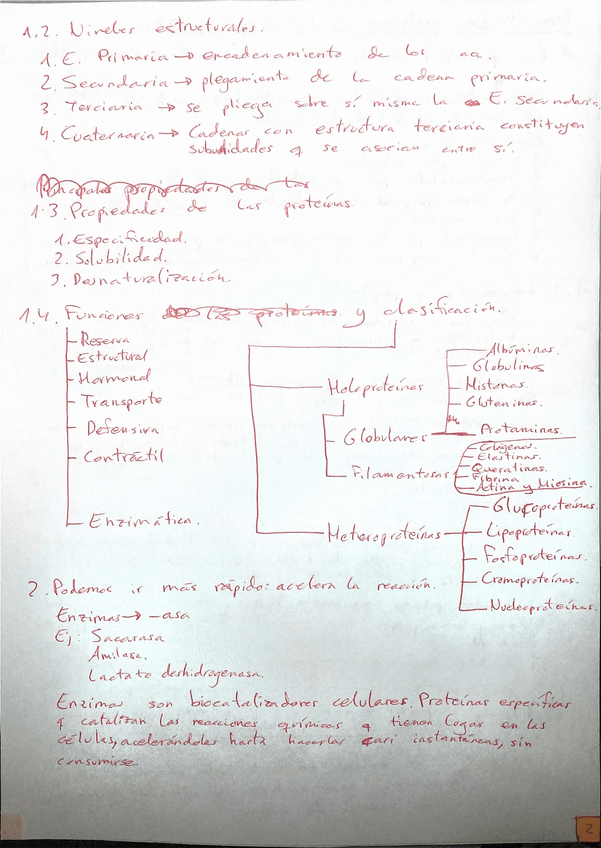 1.2. Niveles estructurales.
1. E. Primaria → encadenamiento de los aa.
2. Secundaria → plegamiento de la cadena primaria.
3. Terciaria → se pliega sobre sí misma la E. Secundaria
4. Cuaternaria → Cadenas con estructura terciaria constituyen
subunidades q se asocian entre sí.
Principales propiedades de las
1.3. Propiedades de las proteínas.
1. Especificidad.
2. Solubilidad.
3. Desnaturalización.
1.4. Funciones de las proteínas y clasificación.
Reserva
Estructural
Hormonal
Transporte
Defensiva
Contráctil
Enzimática.
Holoproteínas
Globulares
Albúminas.
Globulinas
Histonas.
Gluteninas.
Protaminas.
Filamentosas
Colágenos.
Elastinas.
Queratinas.
Fibrina
Actina y Miosina.
Heteroproteínas
Glucoproteínas.
Lipoproteínas.
Fosfoproteínas.
Cromoproteínas.
Nucleoproteínas.
2. Podemos ir más rápido: acelera la reacción.
Enzimas → -asa
Ej: Sacarasa
Amilasa.
Lactato deshidrogenasa.
Enzimas son biocatalizadores celulares. Proteínas específicas
q catalizan las reacciones químicas q tienen lugar en las
células, acelerándolas hasta hacerlas casi instantáneas, sin
consumirse
2